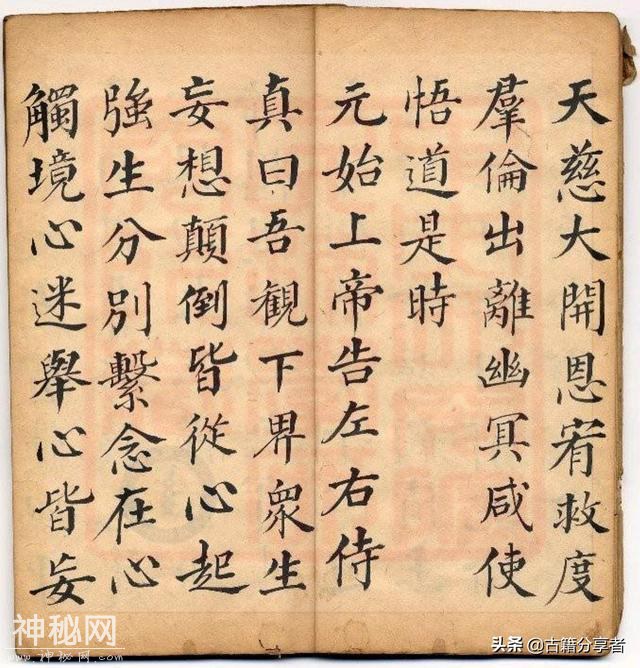 天慈大開恩宥救度
羣倫出離幽冥咸使
悟道是時
元始上帝告左右侍
真曰吾觀下界衆生
妄想顛倒皆從心起
強生分別繫念在心
觸境心迷舉心皆妄
神秘网
www.shenmi.com.cn
头条 @古籍分享者